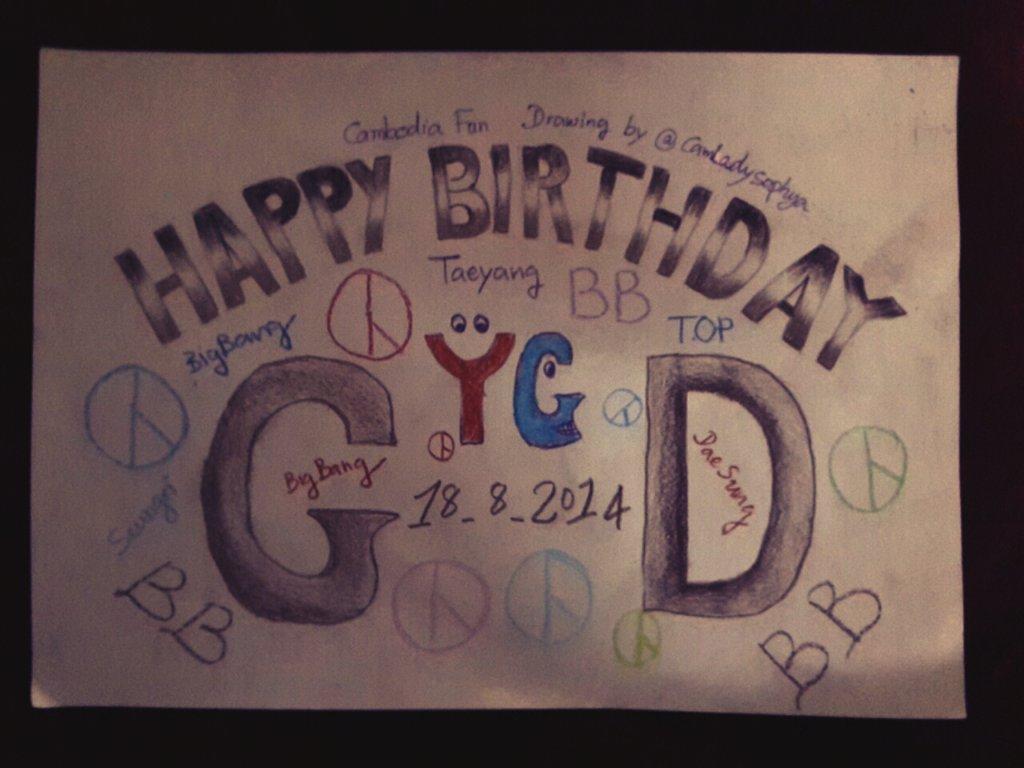 Cambodia Fan Drawing by @CamLadysophya
HAPPY BIRTHDAY
Taeyang
BB
TOP
BigBang
YG
GD
BigBang
DaeSung
18_8_2014
Seungri
BB
BB